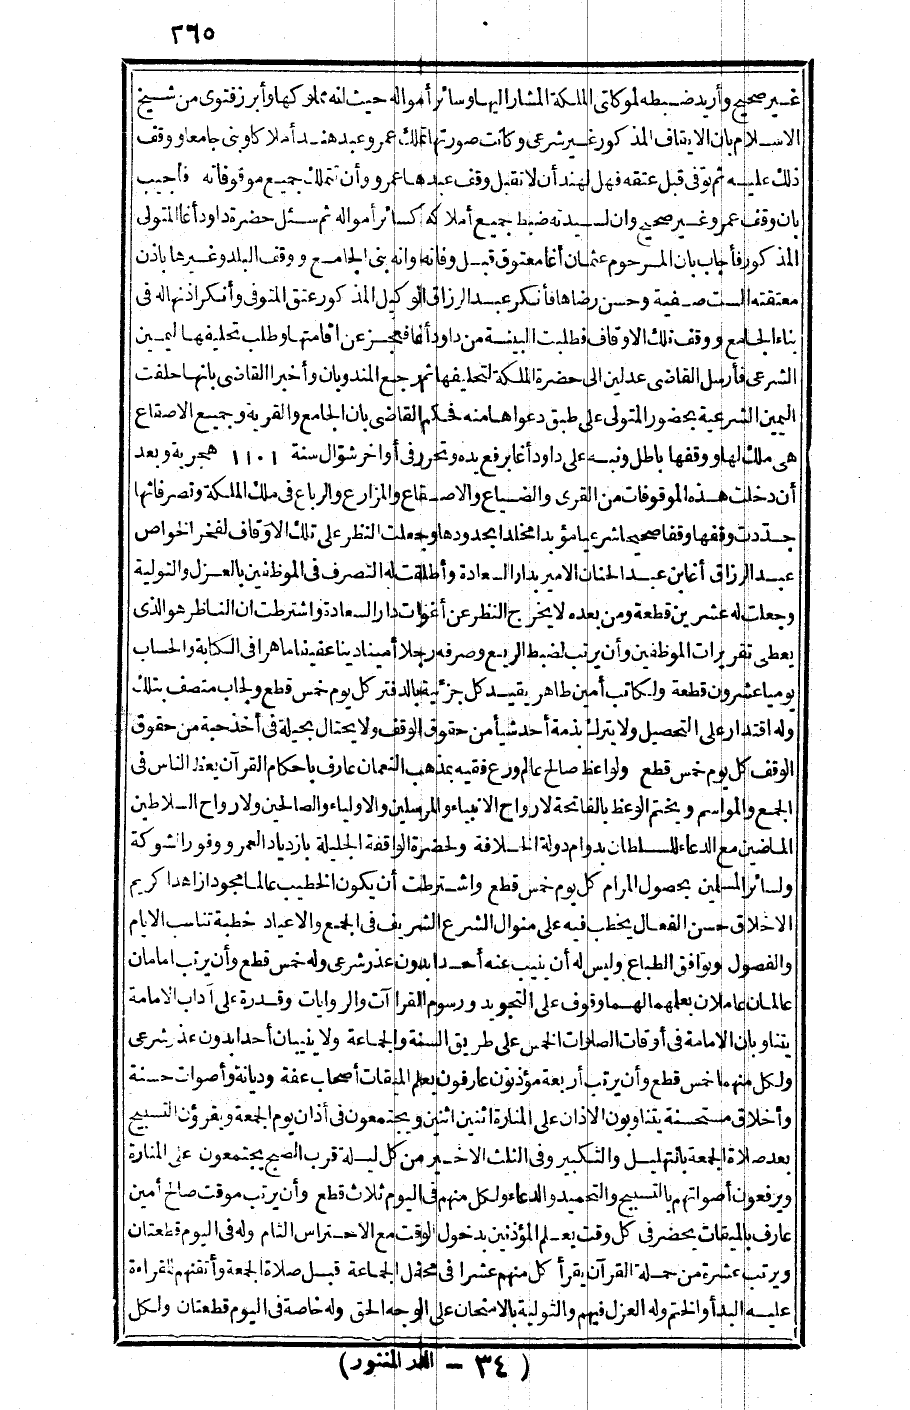 ٢٦٥
غير صحيح وأريد ضبطه لموكلتى الملكة المشار اليها وسائر أمواله حيث انه مملوكها وأبرز فتوى من شيخ
الاسلام بان الايقاف المذكور غير شرعى وكانت صورتها تملك عمرو عبد هند أملاكا وبنى جامعا ووقف
ذلك عليه ثم توفى قبل عتقه فهل لهند أن لا تقبل وقف عبدها عمرو وأن تملك جميع موقوفاته فأجيب
بان وقف عمرو غير صحيح وان لسيدته ضبط جميع أملاكه كسائر أمواله ثم سئل حضرة داود أغا المتولى
المذكور فأجاب بان المرحوم عثمان أغا معتوق قبل وفاته وانه بنى الجامع ووقف البلد وغيرها باذن
معتقته الست صفية وحسن رضاها فأنكر عبد الرزاق الوكيل المذكور عتق المتوفى وأنكر اذنها له فى
بناء الجامع ووقف تلك الاوقاف فطلبت البينة من داود أغا فعجز عن اقامتها وطلب تحليفها اليمين
الشرعى فأرسل القاضى عدلين الى حضرة الملكة لتحليفها ثم رجع المندوبان وأخبرا القاضى بانها حلفت
اليمين الشرعية بحضور المتولى على طبق دعواها منه فحكم القاضى بان الجامع والقرية وجميع الاصقاع
هى ملك لها ووقفها باطل ونبه على داود أغا برفع يده وتحرر فى أواخر شوال سنة ١١٠١ هجرية وبعد
أن دخلت هذه الموقوفات من القرى والضياع والاصقاع والمزارع والرباع فى ملك الملكة وتصرفاتها
جددت وقفها وقفا صحيحا شرعيا مؤبدا مخلدا بحدودها وجعلت النظر على تلك الاوقاف لفخر الخواص
عبد الرزاق أغا بن عبد الحنان الامير بدار السعادة وأطلقت له التصرف فى الموظفين بالعزل والتولية
وجعلت له عشرين قطعة ومن بعده لا يخرج النظر عن أغوات دار السعادة واشترطت ان الناظر هو الذى
يعطى تقريرات الموظفين وأن يرتب لضبط الريع وصرفه رجلا أمينا دينا عفيفا ماهرا فى الكتابة والحساب
يوميا عشرون قطعة ولكاتب أمين طاهر يقيد كل جزئية بالدفتر كل يوم خمس قطع ولجاب متصف بتلك
وله اقتدار على التحصيل ولا يترك بذمة أحد شيأ من حقوق الوقف ولا يحتال بحيلة فى أخذ حبة من حقوق
الوقف كل يوم خمس قطع ولواعظ صالح عالم ورع فقيه بمذهب النعمان عارف باحكام القرآن يعظ الناس فى
الجمع والمواسم ويختم الوعظ بالفاتحة لارواح الانبياء والمرسلين والاولياء والصالحين ولارواح السلاطين
الماضين مع الدعاء للسلطان بدوام دولة الخلافة ولحضرة الواقفة الجليلة بازدياد العمر ووفور الشوكة
ولسائر المسلمين بحصول المرام كل يوم خمس قطع واشترطت أن يكون الخطيب عالما مجودا زاهدا كريم
الاخلاق حسن الفعال يخطب فيه على منوال الشرع الشريف فى الجمع والاعياد خطبة تناسب الايام
والفصول وتوافق الطباع وليس له أن ينيب عنه أحدا بدون عذر شرعى وله خمس قطع وأن يرتب امامان
عالمان عاملان بعلمهما لهما وقوف على التجويد ورسوم القراآت والروايات وقدرة على آداب الامامة
يتناوبان الامامة فى أوقات الصلوات الخمس على طريق السنة والجماعة ولا ينيبان أحدا بدون عذر شرعى
ولكل منهما خمس قطع وأن يرتب أربعة مؤذنون عارفون بعلم الميقات أصحاب عفة وديانة وأصوات حسنة
وأخلاق مستحسنة يتناوبون الاذان على المنارة اثنين اثنين ويجتمعون فى أذان يوم الجمعة ويقرؤن التسبيح
بعد صلاة الجمعة بالتهليل والتكبير وفى الثلث الاخير من كل ليلة قرب الصبح يجتمعون على المنارة
ويرفعون أصواتهم بالتسبيح والتحميد والدعاء ولكل منهم فى اليوم ثلاث قطع وأن يرتب موقت صالح أمين
عارف بالميقات يحضر فى كل وقت يعلم المؤذنين بدخول الوقت مع الاحتراس التام وله فى اليوم قطعتان
ويرتب عشرة من حملة القرآن يقرأ كل منهم عشرا فى محفل الجماعة قبل صلاة الجمعة وأتقنهم للقراءة
عليه البدأ والختم وله العزل فيهم والتولية بالامتحان على الوجه الحق وله خاصة فى اليوم قطعتان ولكل
(٣٤ - الدر المنثور)